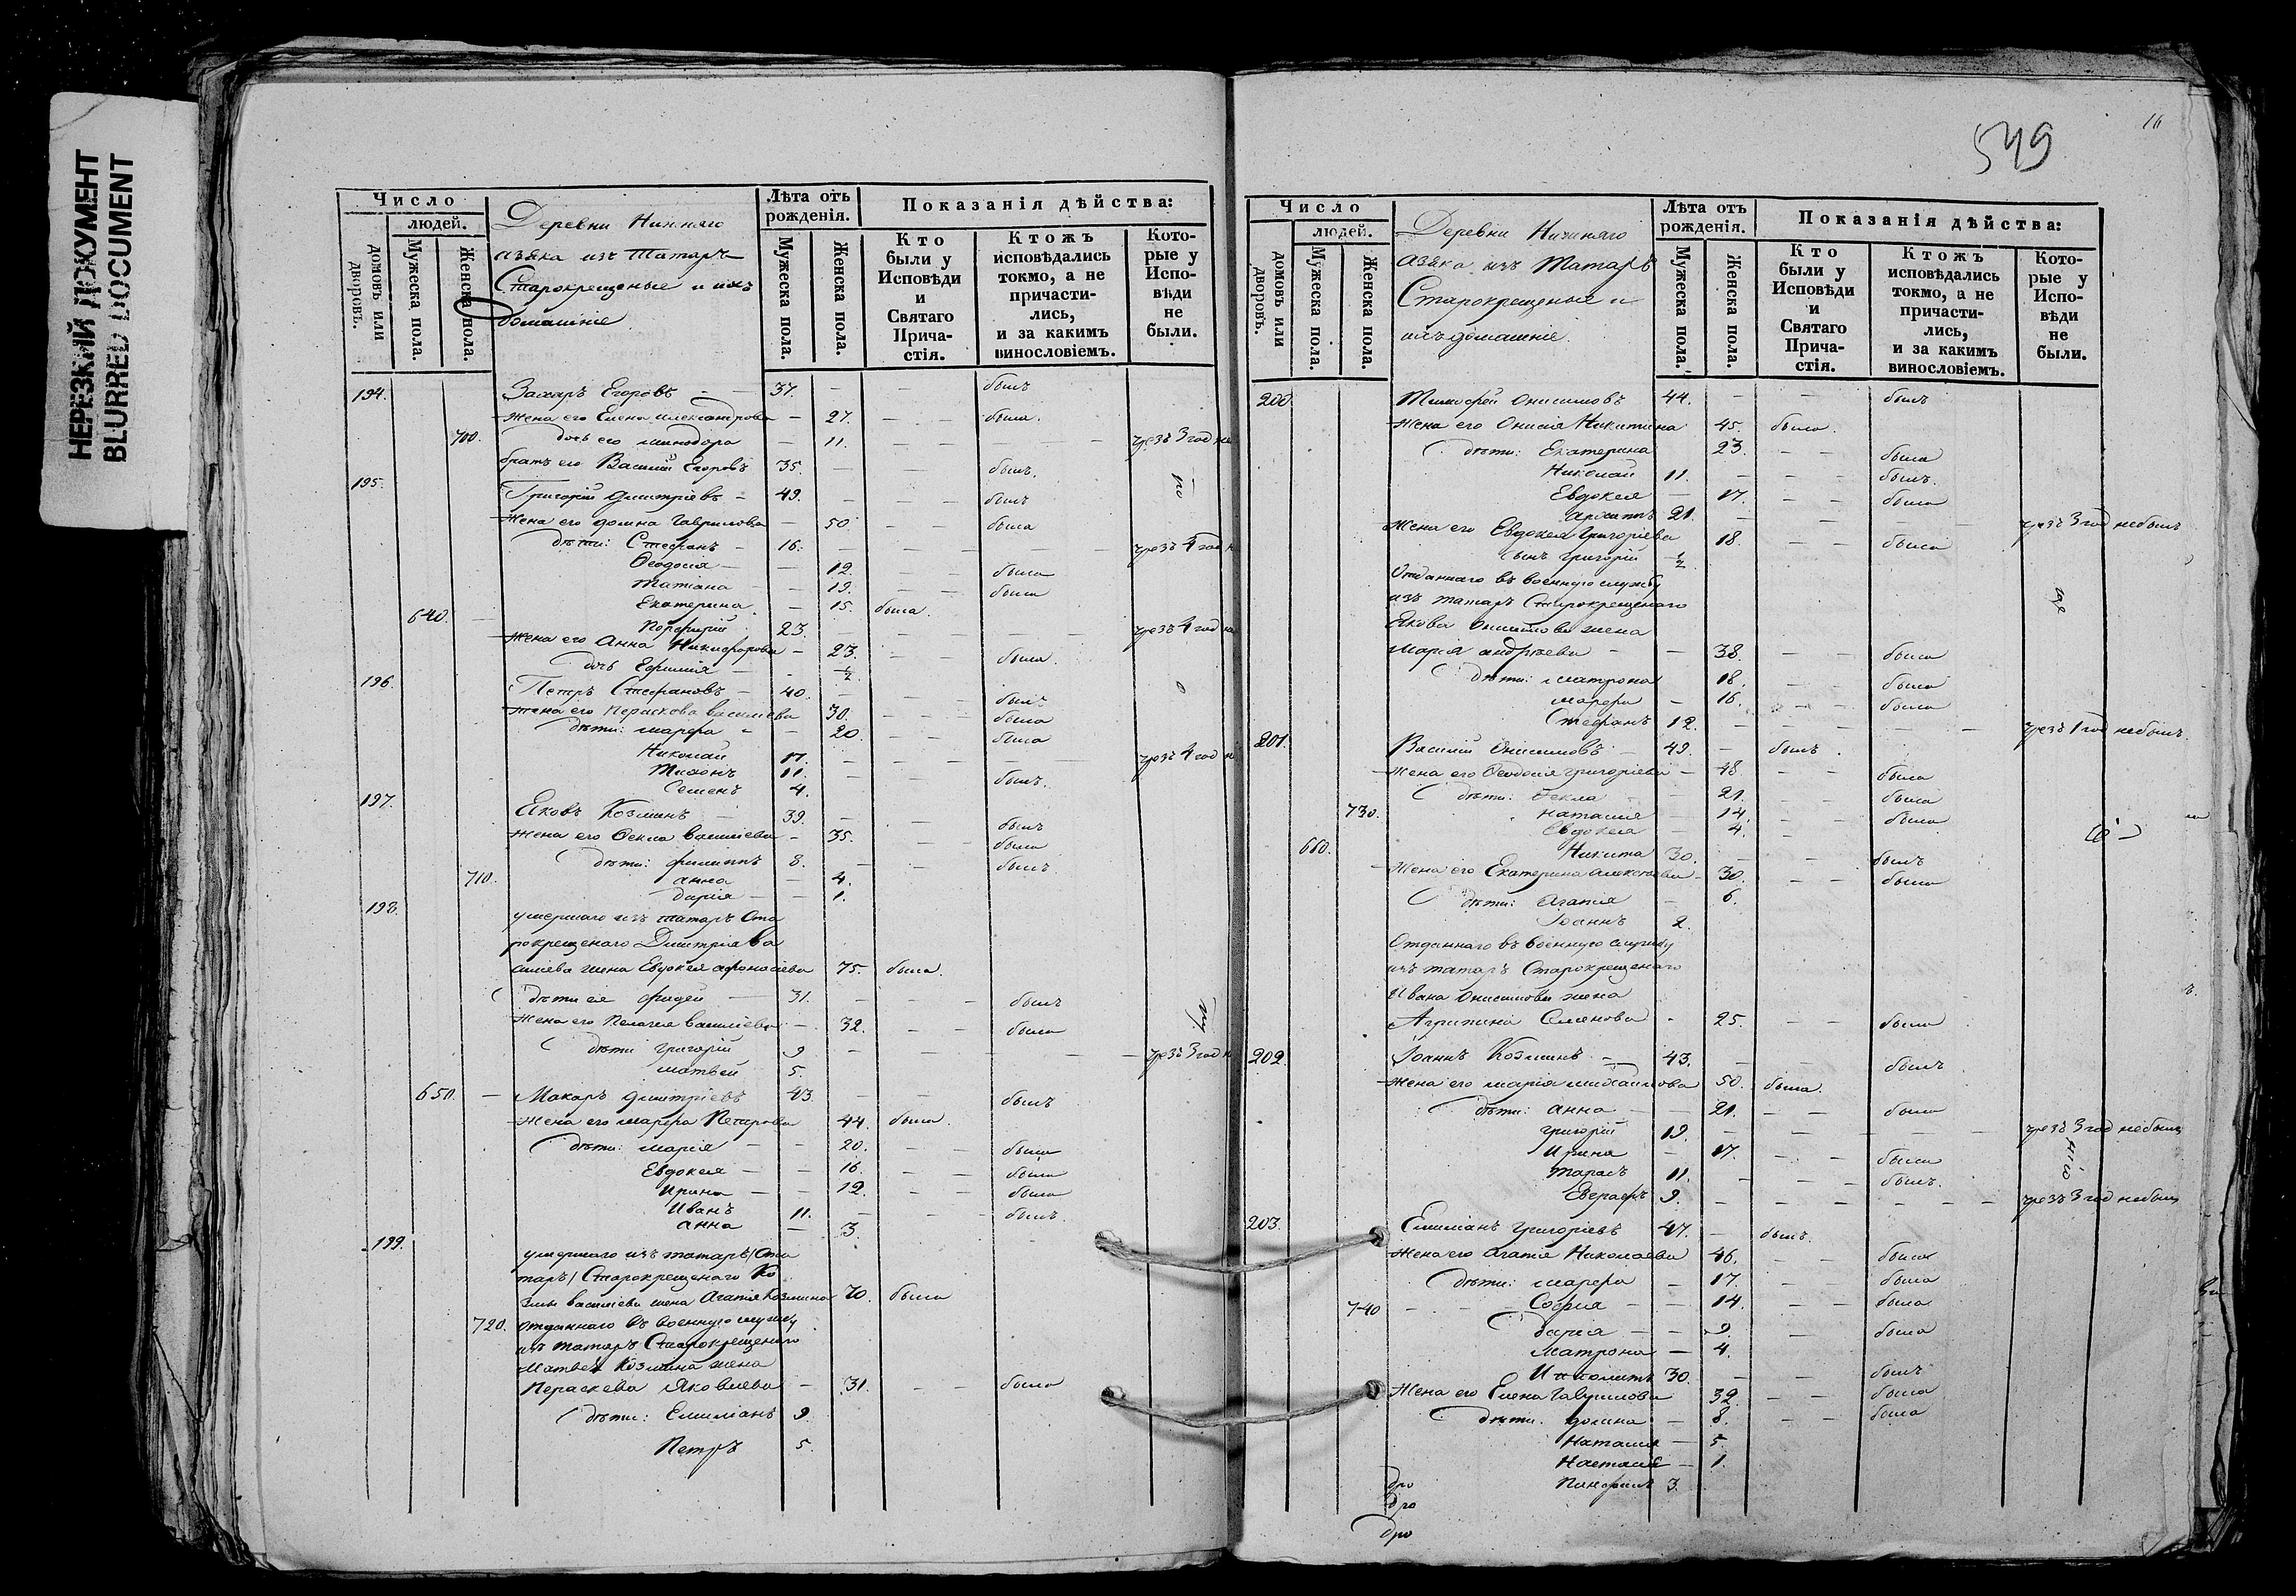 НЕРЕЗКИЙ ДОКУМЕНТ
BLURRED DOCUMENT
Число
людей.
домовъ или дворовъ.
Мужеска пола.
Женска пола.
Деревни Нижняго
азяка изъ татаръ
Старокрещеные и ихъ
домашніе
Лѣта отъ рожденія.
Мужеска пола.
Женска пола.
Показанія дѣйства:
Кто были у Исповѣди и Святаго Прича-стія.
Ктожъ исповѣдались токмо, а не причасти-лись, и за какимъ винословіемъ.
Кото-рые у Испо-вѣди не были.
194. Захаръ Егоровъ - 37. - - былъ
жена его Елена Александрова - 27. - - была.
700. дочь его Минодора - 11. - - - чрезъ 3 год не
братъ его Василій Егоровъ 35. - - былъ.
195. Григорій Димитріевъ - 49. - - былъ
жена его Домна Гаврилова - 50 - - была
дѣти: Стефанъ - 16. - - - чрезъ 4 год н
Ѳеодосія - - 12. - - была
Татіана - 19. - - была
Екатерина - 15. была.
640. Порфирій 23. - - - чрезъ 4 год н
жена его Анна Никифорова - 23. - - была.
дочь Ефимія - - ½
196. Петръ Стефановъ - 40. - - былъ
жена его Пераскова Васильева 30. - - была
дѣти: Марфа - - 20. - - была
Николай 17. - - - чрезъ 4 год н
Тихонъ 11. - - былъ.
Семенъ 4.
197. Яковъ Козминъ - 39. - - былъ
жена его Ѳекла Васильева - 35. - - была
дѣти: Филиппъ 8. - - былъ.
710. Анна - 4.
Дарія - - 1.
198. умершаго изъ татаръ Ста
рокрещенаго Димитрія Ва
сильева жена Евдокея Афонасіева 75. была.
дѣти ея Фадей - 31. - - - былъ
жена его Пелагея Васильева - 32. - - была
дѣти Григорій 9 - - - чрезъ 3 год н
Матвей 5.
650. - Макаръ Димитріевъ 43 - - былъ
жена его Марфа Петрова 44. была.
дѣти: Марія - - 20. - - была
Евдокея - - 16. - - была
Ирина - - 12. - - была
Иванъ 11. - - - былъ.
Анна - 3.
199. умершаго изъ татаръ /Ста
таръ/ Старокрещенаго Ко
змы Васильева жена Агатія Козмина 70. была
720. отданнаго въ военную службу
изъ татаръ Старокрещенаго
Матвея Козмина жена
Пераскева Яковлева - 31. - - была
дѣти: Емиліанъ 9.
Петръ 5.
549
16
Число
людей.
домовъ или дворовъ.
Мужеска пола.
Женска пола.
Деревни Нижняго
азяка изъ Татаръ
Старокрещеные и
ихъ домашніе.
Лѣта отъ рожденія.
Мужеска пола.
Женска пола.
Показанія дѣйства:
Кто были у Исповѣди и Святаго Прича-стія.
Ктожъ исповѣдались токмо, а не причасти-лись, и за какимъ винословіемъ.
Кото-рые у Испо-вѣди не были.
200. Тимофей Онисимовъ 44. - - былъ
жена его Онисія Никитина 45. была.
дѣти: Екатерина 23. - - была
Николай 11. - - былъ.
Евдокея - 17. - - была
21. - - - чрезъ 3 год небылъ
жена его Евдокея Григоріева 18. - - была
сынъ Григорій - ½
Отданнаго въ военную службу
изъ татаръ Старокрещенаго
Якова Онисимова жена
Марія Андреева - - 38. - - была
дѣти: Матрона 18. - - была
Марфа - 16. - - была
Стефанъ 12. - - - чрезъ 1 год небылъ.
201. Василій Онисимовъ - 49. - былъ.
жена его Ѳеодосія Григоріева - 48. - - была
дѣти: Ѳекла - - 21. - - была
730. Наталія - 14. - - была
Евдокея - 4.
660. Никита 30. - - былъ
жена его Екатерина Алексѣева - 30. - - была
дѣти: Агатія - 6.
Іоаннъ 2.
Отданнаго въ военную службу
изъ татаръ Старокрещенаго
Ивана Онисимова жена
Агрипина Семенова - 25. - - была
202. Іоаннъ Козминъ - 43. - - былъ
жена его Марія Михаилова 50. была.
дѣти: Анна - - 21. - - была
Григорій 19. - - - чрезъ 3 год небылъ
Ирина - 17. - - была
Тарасъ 11. - - былъ.
Евграфъ 9. - - - чрезъ 3 год небылъ
203. Емиліанъ Григоріевъ 47. - былъ.
жена его Агатія Николаева 46. - - была
дѣти: Марфа - 17. - - была
740 Софія - - 14. - - была
Дарія - - 9. - была
Матрона - 4.
Ипполитъ 30. - - былъ
жена его Елена Гаврилова 32. - - была
дѣти. Домна - 8. - - была
Наталія - 5.
Настасія - 1.
Панфилъ 3.